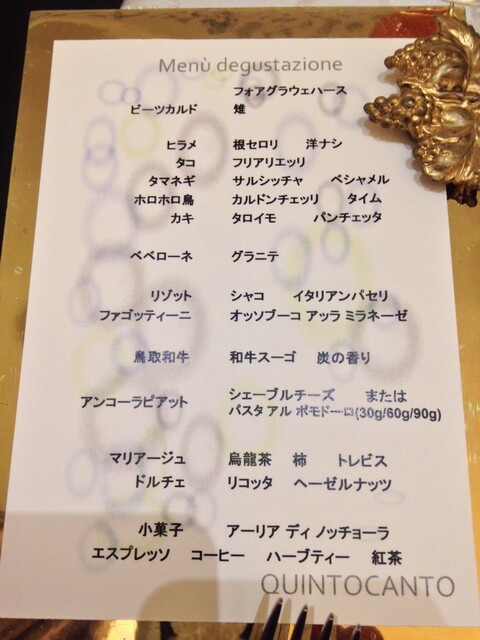 Menù degustazione
フォアグラウェハース
ビーツカルド 雉
ヒラメ 根セロリ 洋ナシ
タコ フリアリエッリ
タマネギ サルシッチャ ベシャメル
ホロホロ鳥 カルドンチェッリ タイム
カキ タロイモ パンチェッタ
ベベローネ グラニテ
リゾット シャコ イタリアンパセリ
ファゴッティーニ オッソブーコ アッラ ミラネーゼ
鳥取和牛 和牛スーゴ 炭の香り
アンコーラピアット シェーブルチーズ または
パスタ アル ポモドーロ(30g/60g/90g)
マリアージュ 烏龍茶 柿 トレビス
ドルチェ リコッタ ヘーゼルナッツ
小菓子 アーリア ディ ノッチョーラ
エスプレッソ コーヒー ハーブティー 紅茶
QUINTOCANTO